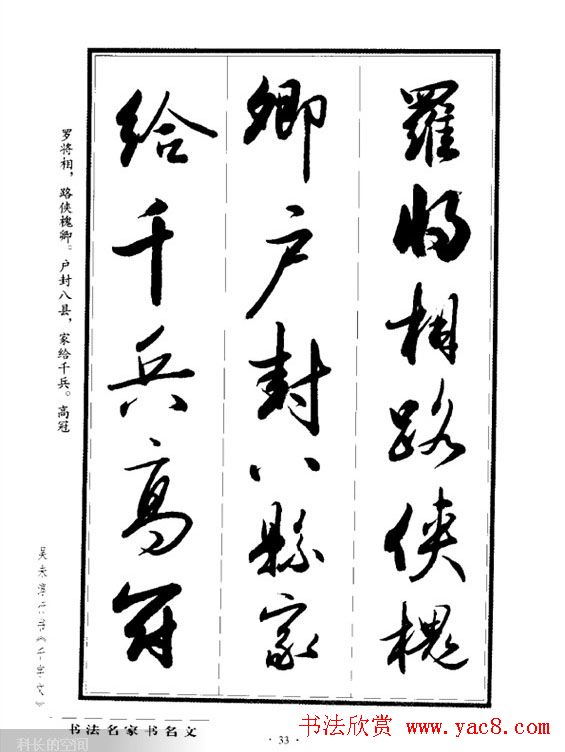 羅将相路侠槐
卿户封八縣家
给千兵高冠
罗将相，路侠槐卿。户封八县，家给千兵。高冠
吴未淳行书《千字文》
书法名家书名文
· 33 ·
书法欣赏 www.yac8.com
科长的空间